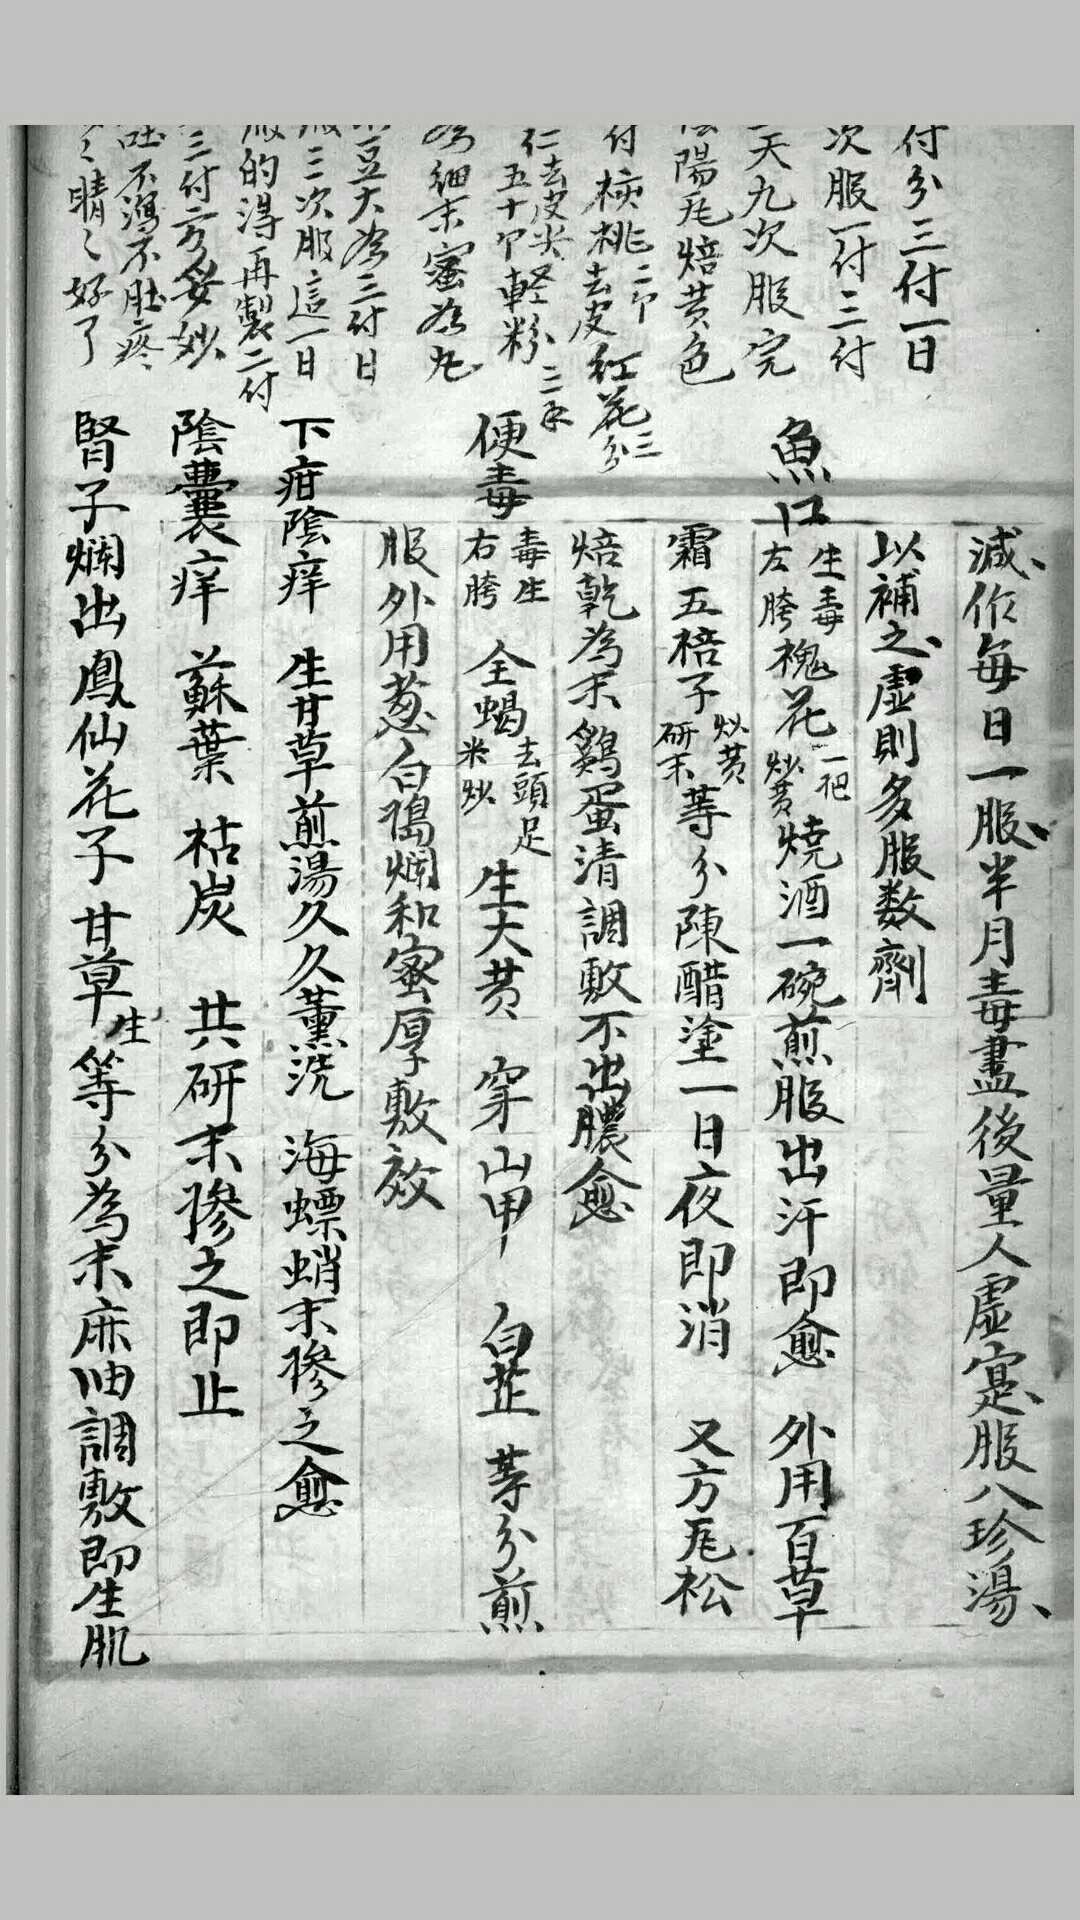 付分三付一日
次服一付三付
天九次服完
陽瓦焙黄色
付核桃二个去皮紅花三分
仁去皮尖五十个軽粉三
為細末蜜為丸
豆大為三付日
服三次服這一日
服的淂再製二付
三付方妥妙
吐不瀉不肚疼
晴〻好了
減作每日一服半月毒盡後量人虛寔服八珍湯
以補之虛則多服数劑
魚口生毒左胯槐花一把炒黄燒酒一碗煎服出汗即愈　外用百草
霜五棓子炒黄研末等分陳醋塗一日夜即消　又方瓦松
焙乾為末鷄蛋清調敷不出膿愈
便毒毒生右胯　全蝎去頭足米炒　生大黄　穿山甲　白芷　等分煎
服外用葱白搗爛和蜜厚敷效
下疳陰痒　生甘草煎湯久久薰洗　海螵蛸末摻之愈
陰囊痒　蘇葉　枯炭　共研末摻之即止
腎子爛出鳳仙花子　甘草生等分為末麻油調敷即生肌